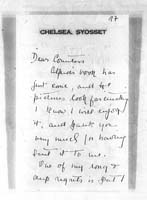 97
CHELSEA, SYOSSET
Dear Countess
book has
just come, and the
pictures look fascinating
I know I will enjoy
it, and thank you
very much for having
sent it to me.
One of my long &
deep regrets is that I